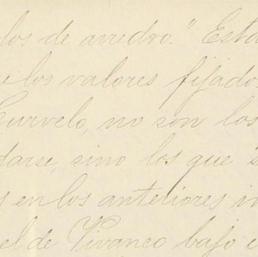 los de arredro." Esta
los valores fijados
Curvelo, no son los
darse, sino los que
en los anteriores in
el de Vivanco bajo